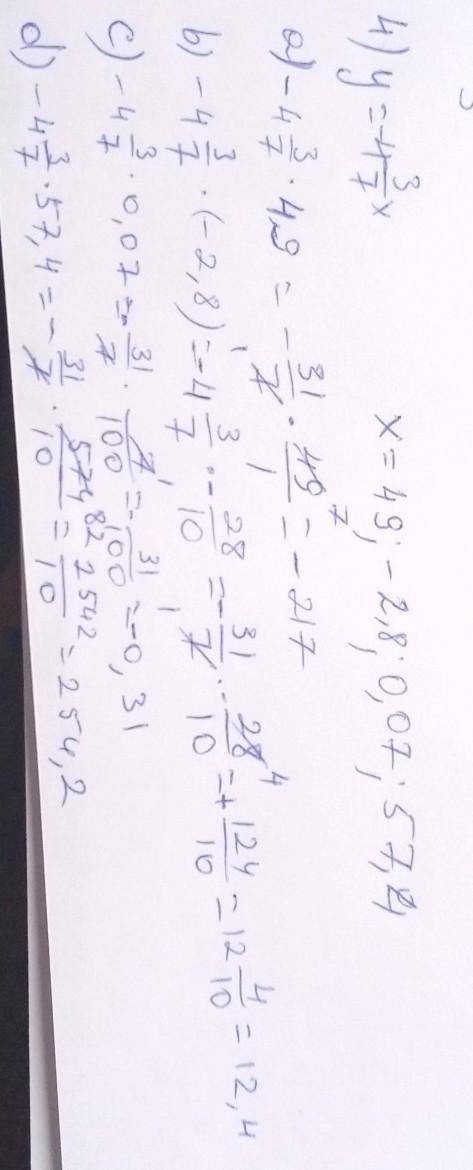 4) y = -4 3/7 x x = 49; -2,8; 0,07; 57,4
a) -4 3/7 · 49 = - 31/7 · 49/1 7 = -217
b) -4 3/7 · (-2,8) = -4 3/7 · - 28/10 = - 31/7 · - 28/10 4 = + 124/10 = 12 4/10 = 12,4
c) -4 3/7 · 0,07 = - 31/7 · 7/100 = - 31/100 = -0,31
d) -4 3/7 · 57,4 = - 31/7 · 574/10 82 = 2542/10 = 254,2